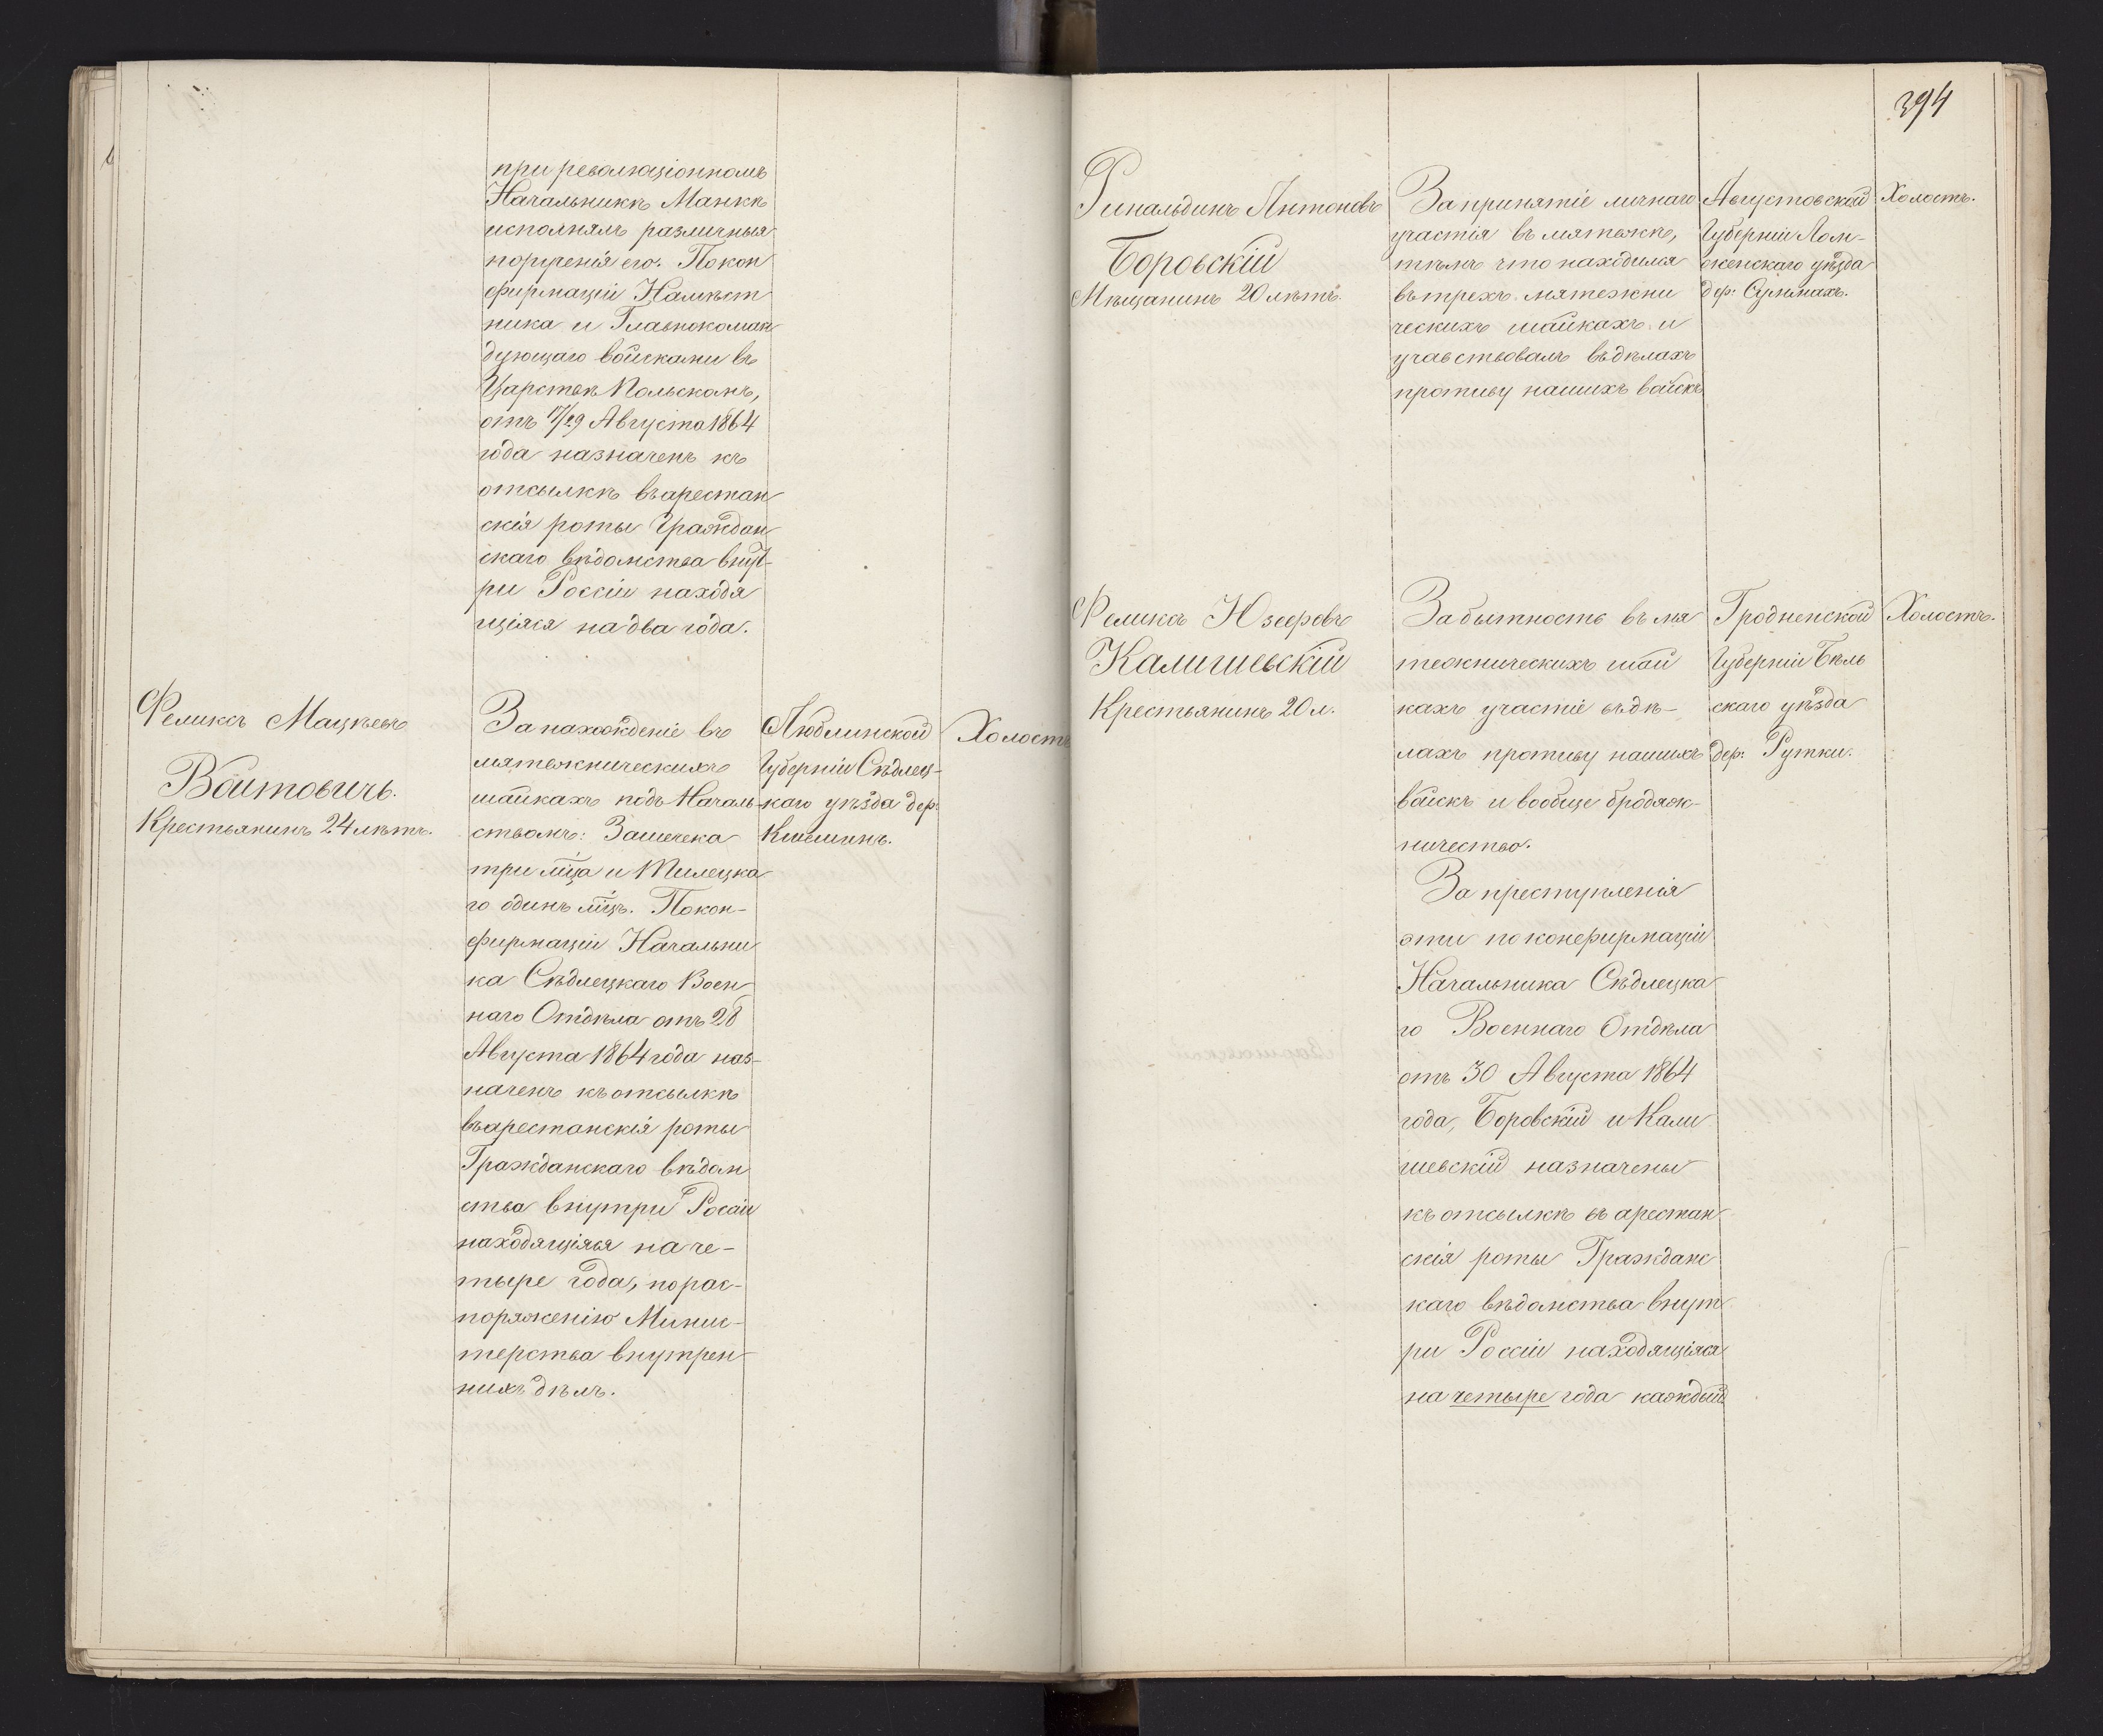 при революціонномъ
Начальникѣ Манкѣ
исполнялъ различныя
порученія его. По кон
фирмаціи Намѣст
ника и Главнокоман
дующаго войсками въ
Царствѣ Польскомъ,
отъ 17/29 Августа 1864
года назначенъ къ
отсылкѣ въ арестан
скія роты Граждан
скаго вѣдомства внут-
ри Россіи находя
щіяся на два года.
Феликсъ Мацѣевъ
Войтовичъ.
Крестьянинъ 24 лѣтъ.
За нахожденіе въ
мятежническихъ
шайкахъ подъ Началь-
ствомъ:
три мца и
го одинъ мцъ. По кон-
фирмаціи Начальни
ка Сѣдлецкаго Воен
наго Отдѣла отъ 28
Августа 1864 года наз-
наченъ къ отсылкѣ
въ арестанскія роты
Гражданскаго вѣдом
ства внутри Росіи
находящіяся на че-
тыре года, по рас-
поряженію Минис-
терства внутрен
нихъ дѣлъ.
Люблинской
Губерніи Сѣдлец-
каго уѣзда дер:
Холостъ
394
Ринальдинъ Антоновъ
Боровскій
Мѣщанинъ 20 лѣтъ.
За принятіе личнаго
участія въ мятежѣ,
тѣмъ что находился
въ трехъ мятежни
ческихъ шайкахъ и
учавствовалъ въ дѣлахъ
противу нашихъ войскъ
Августовской
Губерніи Лом-
женскаго уѣзда
дер: Сулимахъ.
Холостъ.
Феликсъ Юзефовъ
Калишевскій
Крестьянинъ 20 л.
За бытность въ мя
тежническихъ шай
кахъ участіе въ дѣ-
лахъ противу нашихъ
войскъ и вообще бродяж-
ничество.
За преступленія
эти по конфирмаціи
Начальника Сѣдлецка
го Военнаго Отдѣла
отъ 30 Августа 1864
года, Боровскій и Кали
шевскій назначены
къ отсылкѣ въ арестан
скія роты Гражданс
каго вѣдомства внут
ри Россіи находящіяся
на четыре года каждый
Гродненской
Губерніи Бѣль
скаго уѣзда
дер: Рутки.
Холостъ.